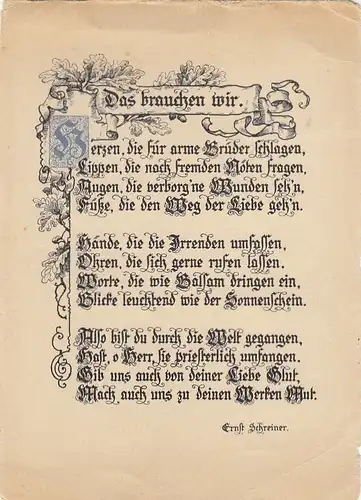 Das brauchen wir.
Herzen, die für arme Brüder schlagen,
Lippen, die nach fremden Nöten fragen,
Augen, die verborg'ne Wunden seh'n,
Füße, die den Weg der Liebe geh'n.
Hände, die die Irrenden umfassen,
Ohren, die sich gerne rufen lassen,
Worte, die wie Balsam dringen ein,
Blicke leuchtend wie der Sonnenschein.
Also bist du durch die Welt gegangen,
Hast, o Herr, sie priesterlich umfangen.
Gib uns auch von deiner Liebe Glut,
Mach auch uns zu deinen Werken Mut.
Ernst Schreiner.